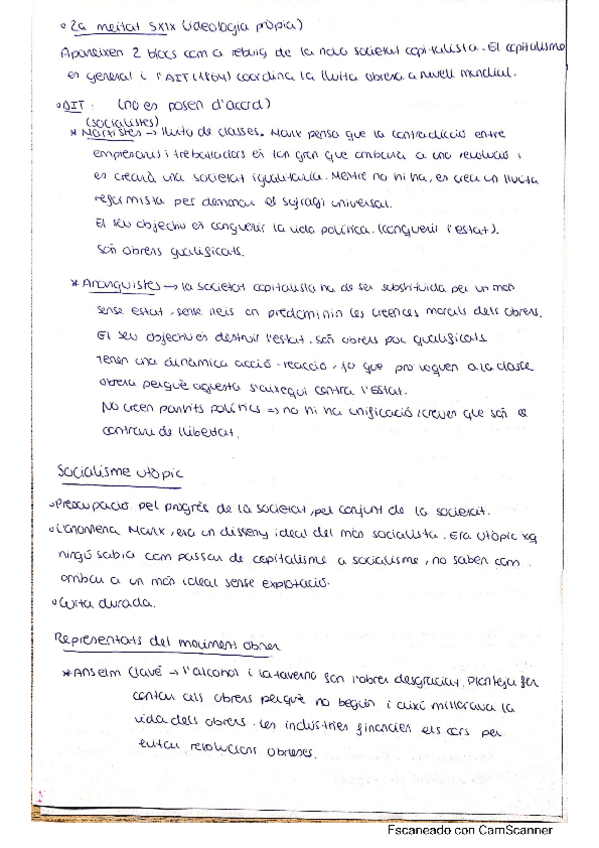 · 2a meitat SXIX (ideologia pròpia)
Apareixen 2 blocs com a rebuig de la nova societat capitalista. El capitalisme
es general i l'AIT (1864) coordina la lluita obrera a nivell mundial.
· AIT: (no es posen d'acord)
(socialistes)
* Marxistes → lluita de classes. Marx pensa que la contradicció entre
empresaris i treballadors és tan gran que arribarà a una revolució i
es crearà una societat igualitaria. Mentre no hi ha, es crea un lluita
reformista per demanar el sufragi universal.
El seu objectiu es conquerir la vida política. (conquerir l'estat).
Són obrers qualificats.
* Anarquistes → la societat capitalista ha de ser substituida per un món
sense estat, sense lleis on predominin les creences morals dels obrers.
El seu objectiu es destruir l'estat. Són obrers poc qualificats
Tenen una dinàmica acció-reacció, fa que provoquen a la classe
obrera perquè aquesta s'aixequi contra l'estat.
No creen partits polítics => no hi ha unificació i creuen que són el
contrari de llibertat.
Socialisme utòpic
· Preocupació pel progrés de la societat, pel conjunt de la societat.
· L'anomena Marx, era un disseny ideal del món socialista. Era utòpic xq
ningú sabia com passar de capitalisme a socialisme, no saben com
arribar a un món ideal sense explotació.
· Curta durada.
Representats del moviment obrer
* Anselm Clavé → l'alcohol i la taverna fan l'obrer desgraciat. Planteja fer
cantar als obrers perquè no beguin i així millorava la
vida dels obrers. Les indústries financien els cors per
evitar revolucions obreres.
Escaneado con CamScanner